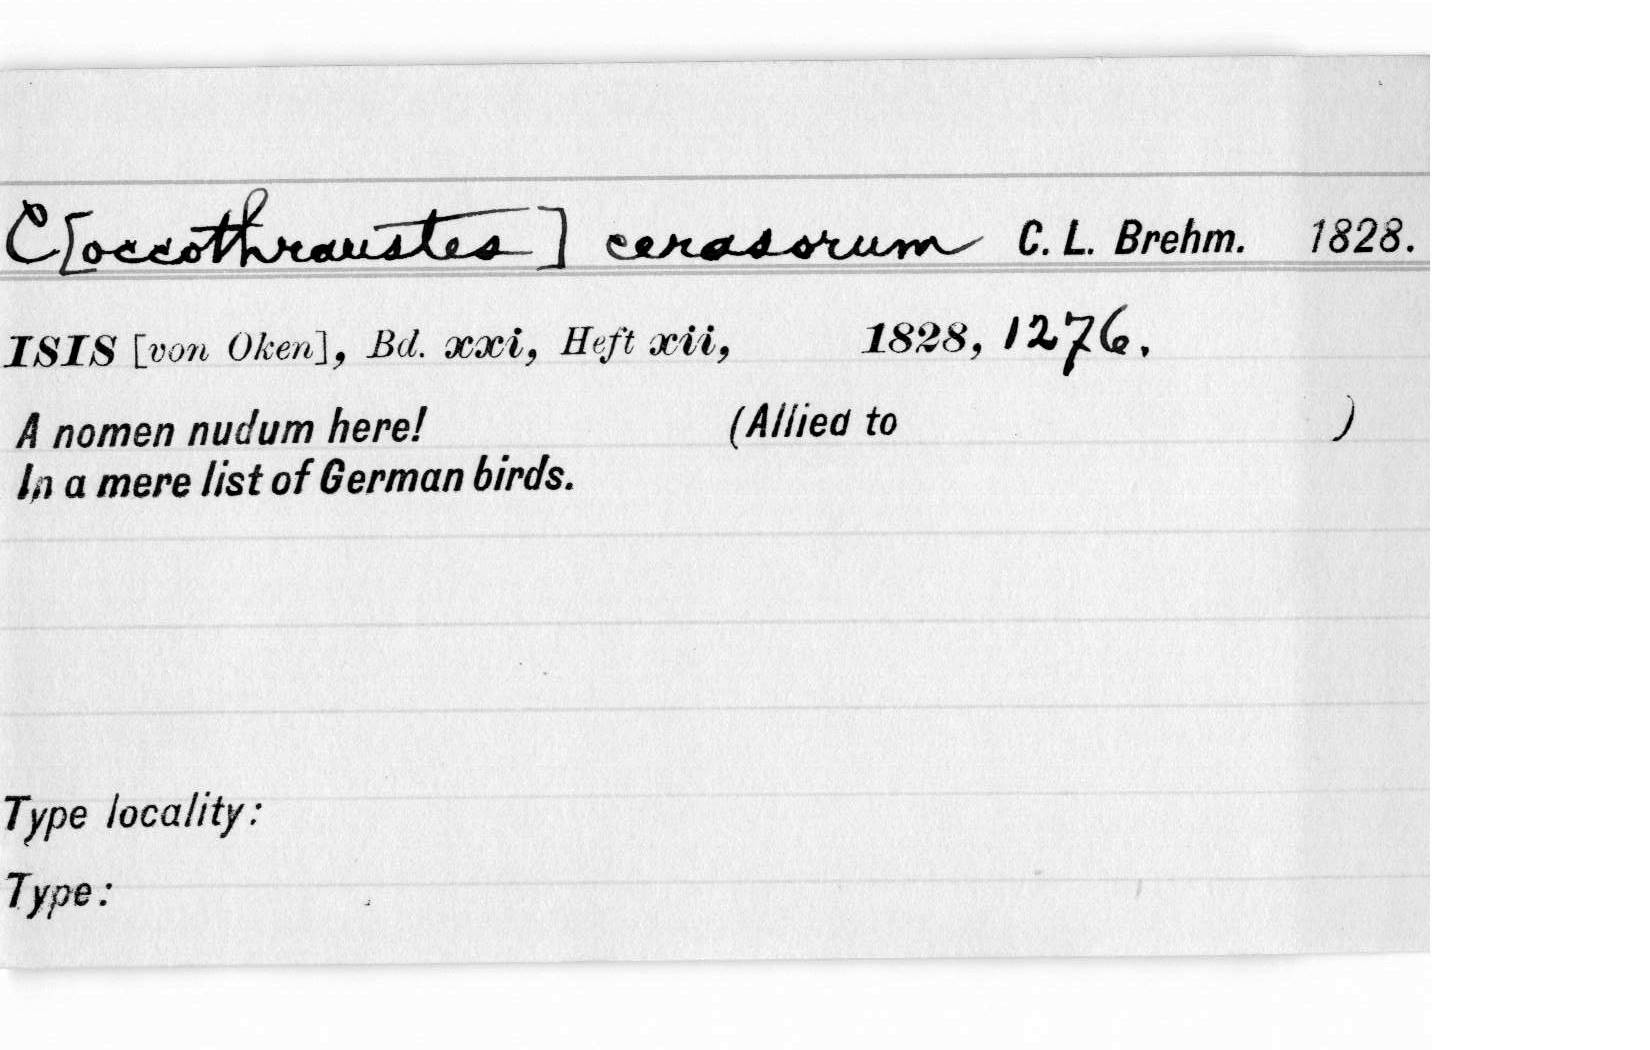 C[occothraustes] cerasorum C. L. Brehm. 1828.
ISIS [von Oken], Bd. xxi, Heft xii, 1828, 1276.
A nomen nudum here! (Allied to )
In a mere list of German birds.
Type locality:
Type: